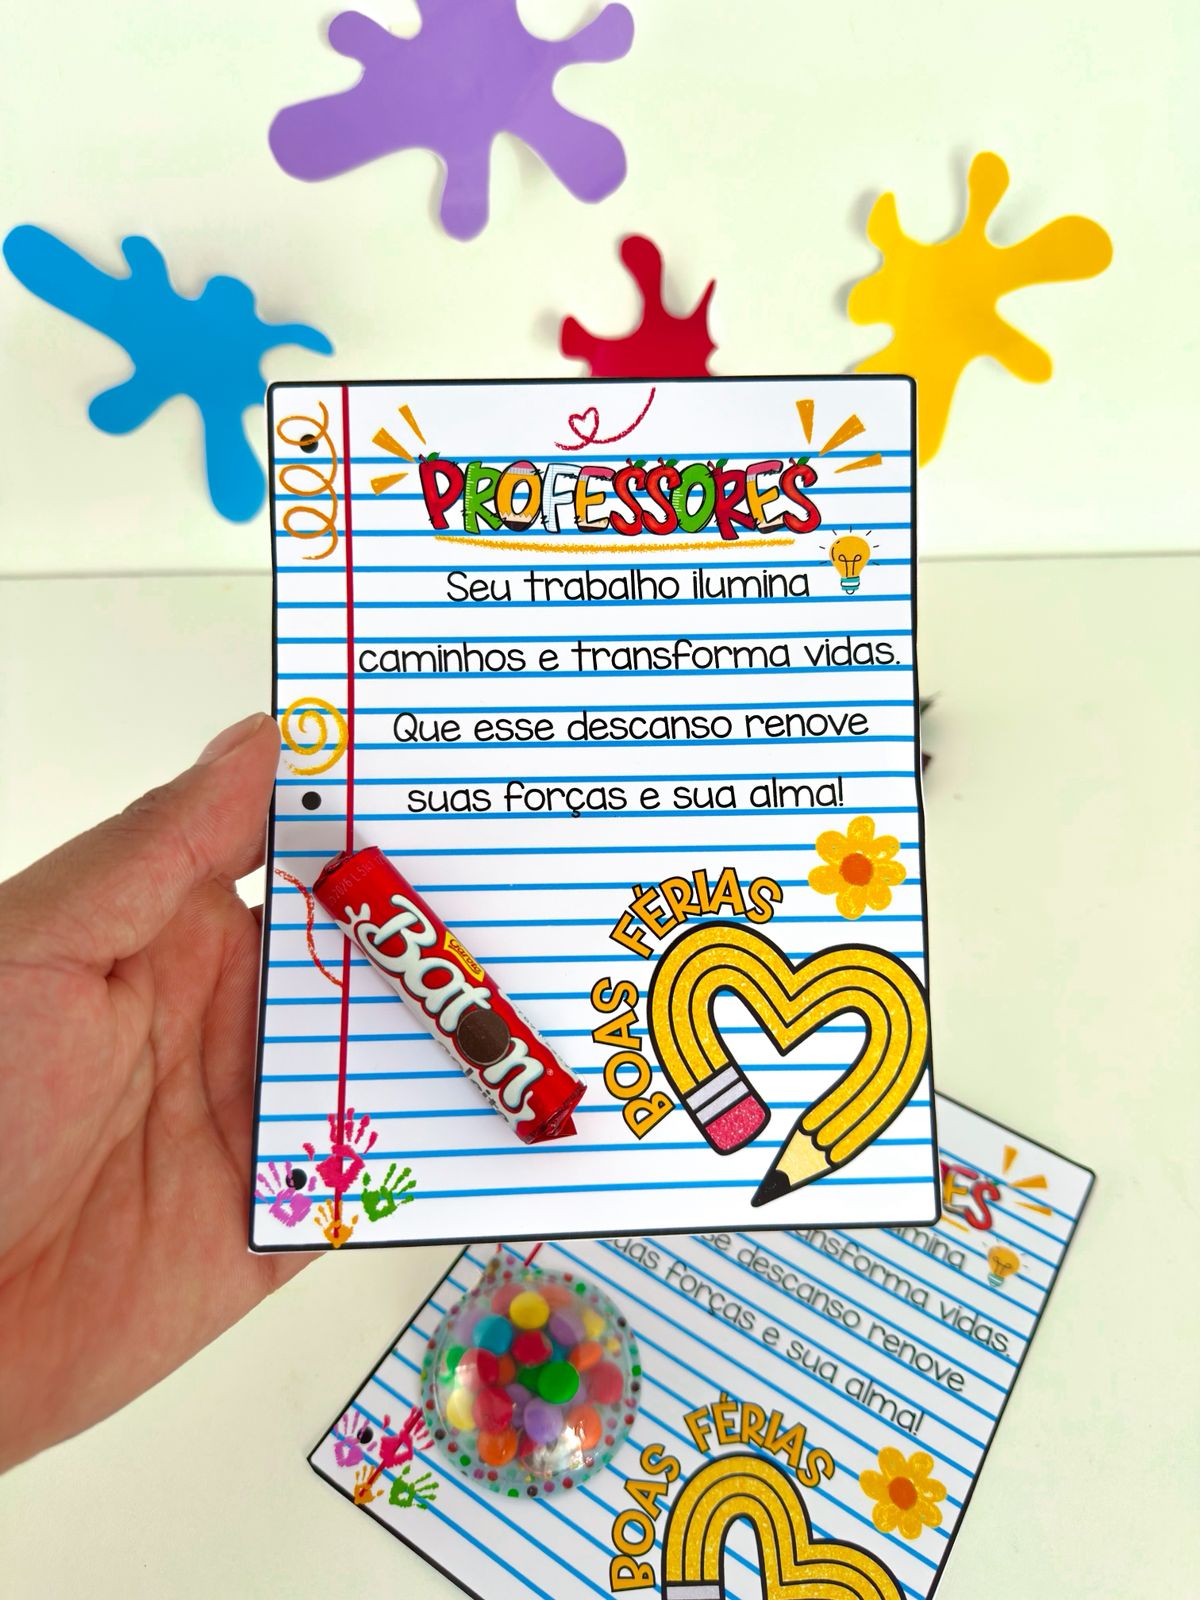 PROFESSORES
Seu trabalho ilumina
caminhos e transforma vidas.
Que esse descanso renove
suas forças e sua alma!
BOAS FÉRIAS
Garoto
Baton
ES
umina
ansforma vidas.
se descanso renove
uas forças e sua alma!
BOAS FÉRIAS